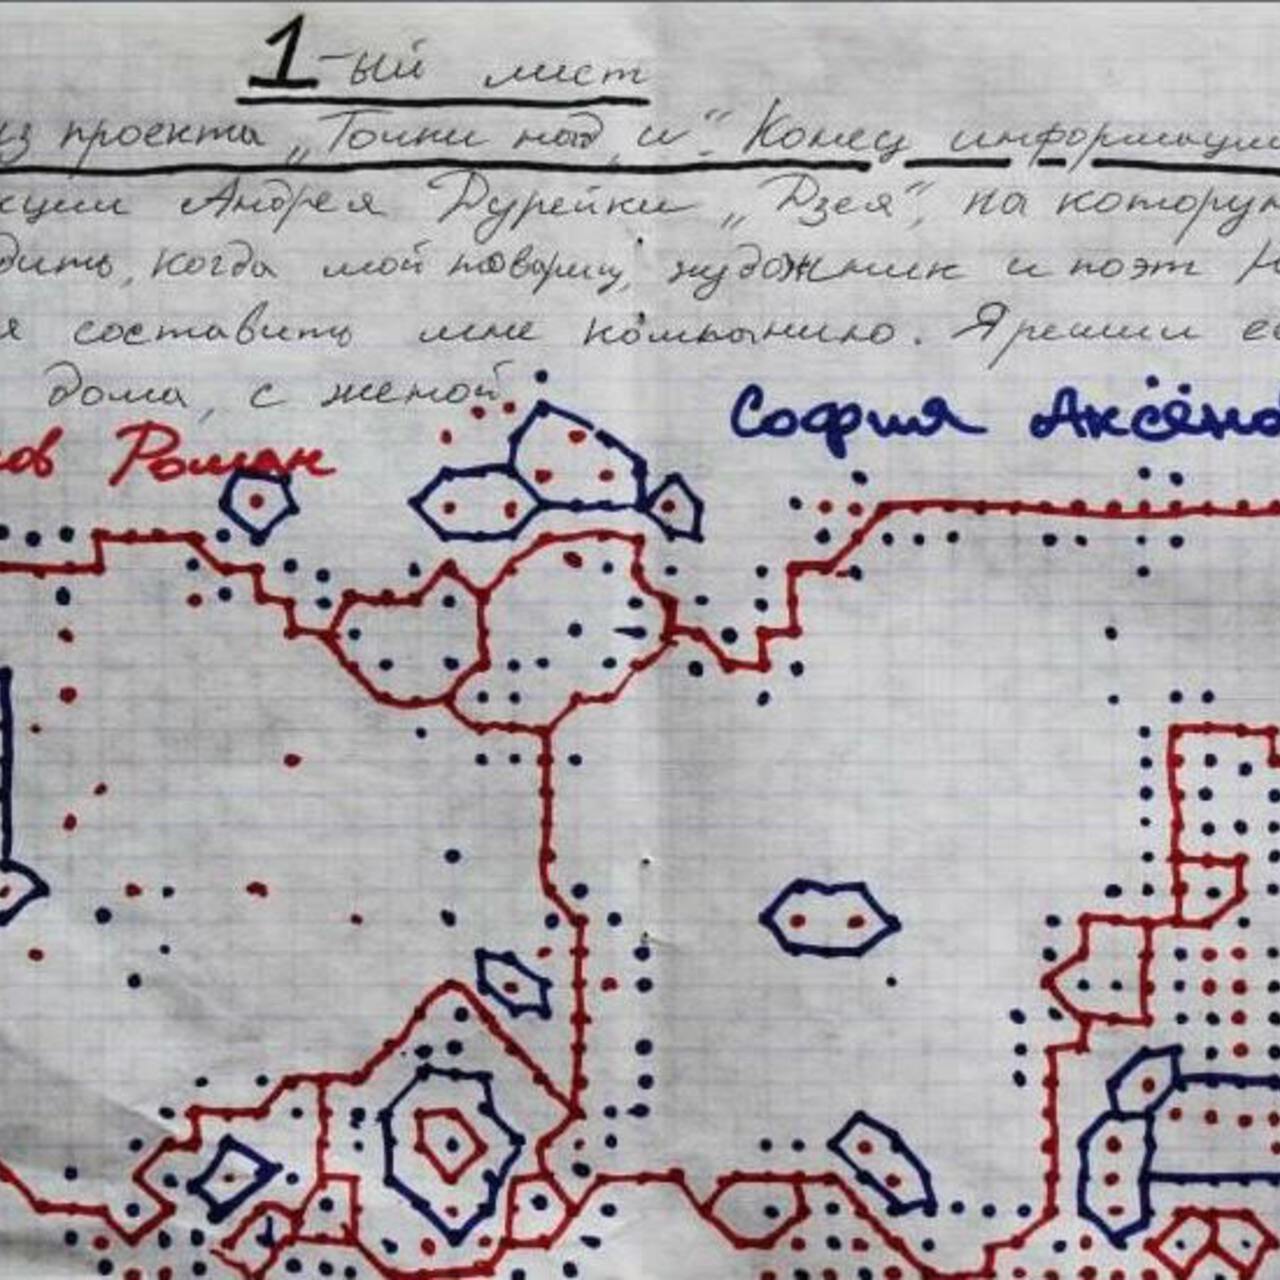 1-ый лист
из проекта „Точки над „и“. Конец информации
кции Андрея Дурейки „Дзея“, на которую
дить, когда мой товарищ, художник и поэт
я составить мне компанию. Я решил её
дома, с женой
ов Роман
София Аксёно